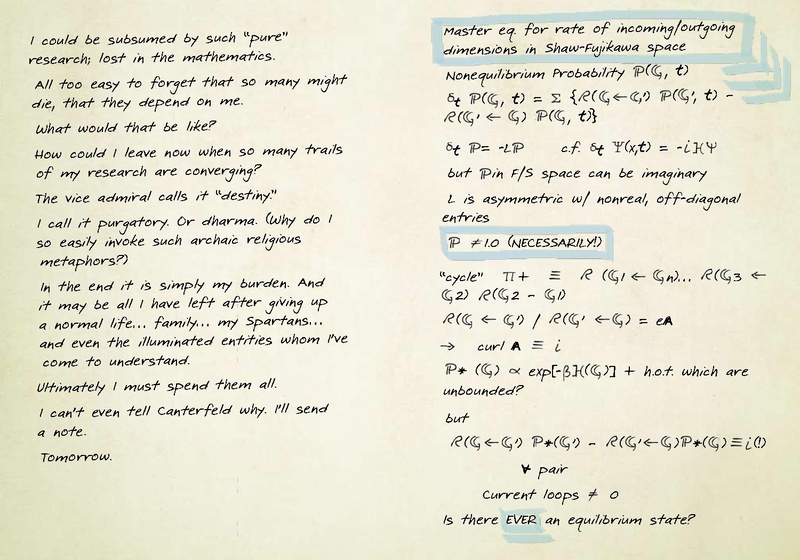 I could be subsumed by such "pure"
research; lost in the mathematics.
All too easy to forget that so many might
die, that they depend on me.
What would that be like?
How could I leave now when so many trails
of my research are converging?
The vice admiral calls it "destiny."
I call it purgatory. Or dharma. (Why do I
so easily invoke such archaic religious
metaphors?)
In the end it is simply my burden. And
it may be all I have left after giving up
a normal life... family... my Spartans...
and even the illuminated entities whom I've
come to understand.
Ultimately I must spend them all.
I can't even tell Canterfeld why. I'll send
a note.
Tomorrow.
Master eq. for rate of incoming/outgoing
dimensions in Shaw-Fujikawa space
Nonequilibrium Probability ℙ(𝔾, t)
δt ℙ(𝔾, t) = Σ {R(𝔾←𝔾') ℙ(𝔾', t) -
R(𝔾' ← 𝔾) ℙ(𝔾, t)}
δt ℙ= -Lℙ c.f. δt Ψ(x,t) = -iℋΨ
but ℙin F/S space can be imaginary
L is asymmetric w/ nonreal, off-diagonal
entries
ℙ ≠1.0 (NECESSARILY!)
"cycle" Π+ ≡ R (𝔾1 ← 𝔾n)... R(𝔾3 ←
𝔾2) R(𝔾2 - 𝔾1)
R(𝔾 ← 𝔾') / R(𝔾' ←𝔾) = eA
→ curl A ≡ i
ℙ* (𝔾) ∝ exp[-βℋ(𝔾)] + h.o.t. which are
unbounded?
but
R(𝔾←𝔾') ℙ*(𝔾') - R(𝔾'←𝔾)ℙ*(𝔾)≡i(!)
∀ pair
Current loops ≠ 0
Is there EVER an equilibrium state?